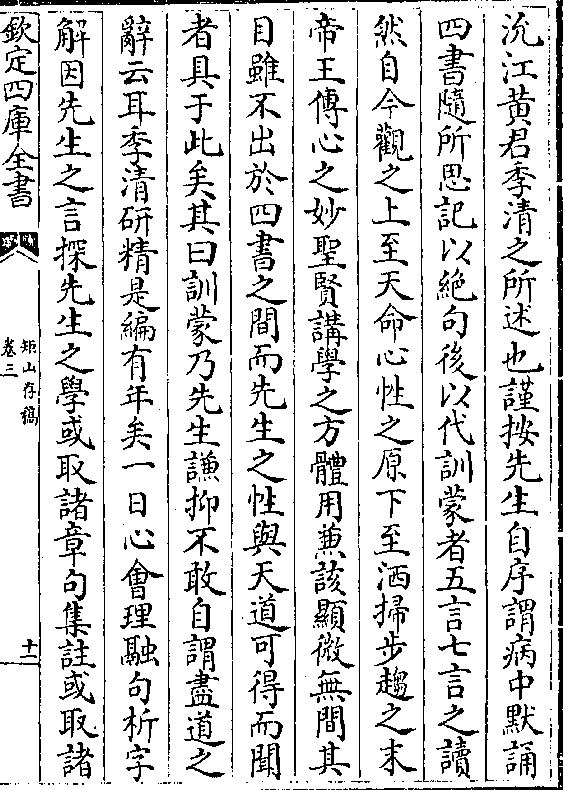 沅江黄君季清之所述也謹按先生自序謂病中默誦
四書隨所思記以絶句後以代訓蒙者五言七言之讀
然自今觀之上至天命心性之原下至洒掃步趨之末
帝王傳心之妙聖賢講學之方體用兼該顯微無間其
目雖不出於四書之間而先生之性與天道可得而聞
者具于此矣其曰訓蒙乃先生謙抑不敢自謂盡道之
辭云耳季清研精是編有年矣一日心會理融句析字
解因先生之言探先生之學或取諸章句集註或取諸
欽定四庫全書
矩山存稿
卷三
十二